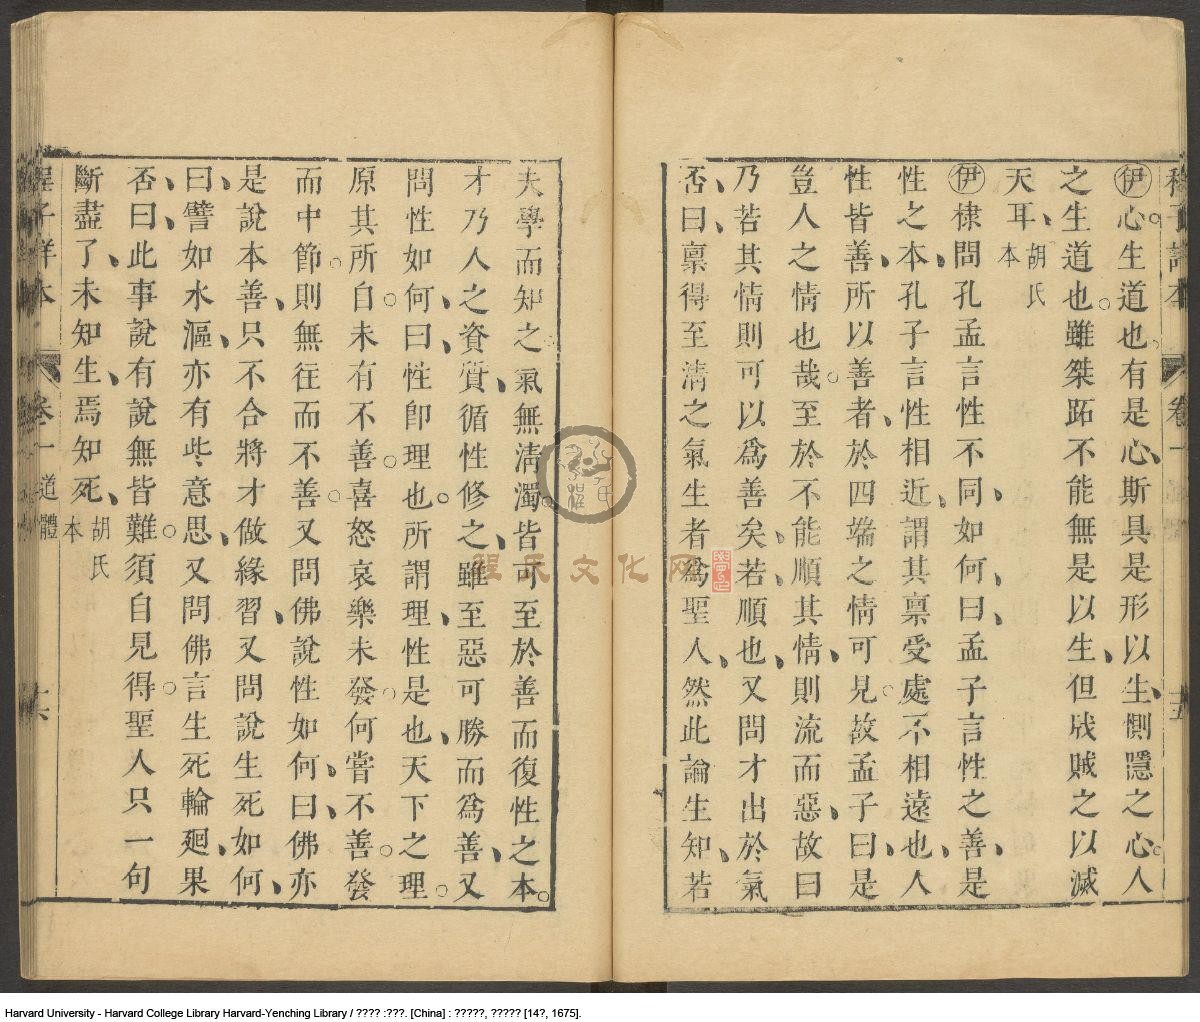 程子詳本 卷一 十五
伊心生道也有是心斯具是形以生惻隱之心人
之生道也雖桀跖不能無是以生但戕賊之以滅
天耳胡氏本
伊棣問孔孟言性不同如何曰孟子言性之善是
性之本孔子言性相近謂其稟受處不相遠也人
性皆善所以善者於四端之情可見故孟子曰是
豈人之情也哉至於不能順其情則流而惡故曰
乃若其情則可以為善矣若順也又問才出於氣
否曰稟得至清之氣生者為聖人然此論生知若
夫學而知之氣無清濁皆可至於善而復性之本
才乃人之資質循性修之雖至惡可勝而為善又
問性如何曰性卽理也所謂理性是也天下之理
原其所自未有不善喜怒哀樂未發何嘗不善發
而中節則無往而不善又問佛說性如何曰佛亦
是說本善只不合將才做緣習又問說生死如何
曰譬如水漚亦有些意思又問佛言生死輪廻果
否曰此事說有說無皆難須自見得聖人只一句
斷盡了未知生焉知死胡氏本
程子詳本 卷一 道體 十六
程氏文化网
Harvard University - Harvard College Library Harvard-Yenching Library / ???? :???. [China] : ?????, ????? [14?, 1675].